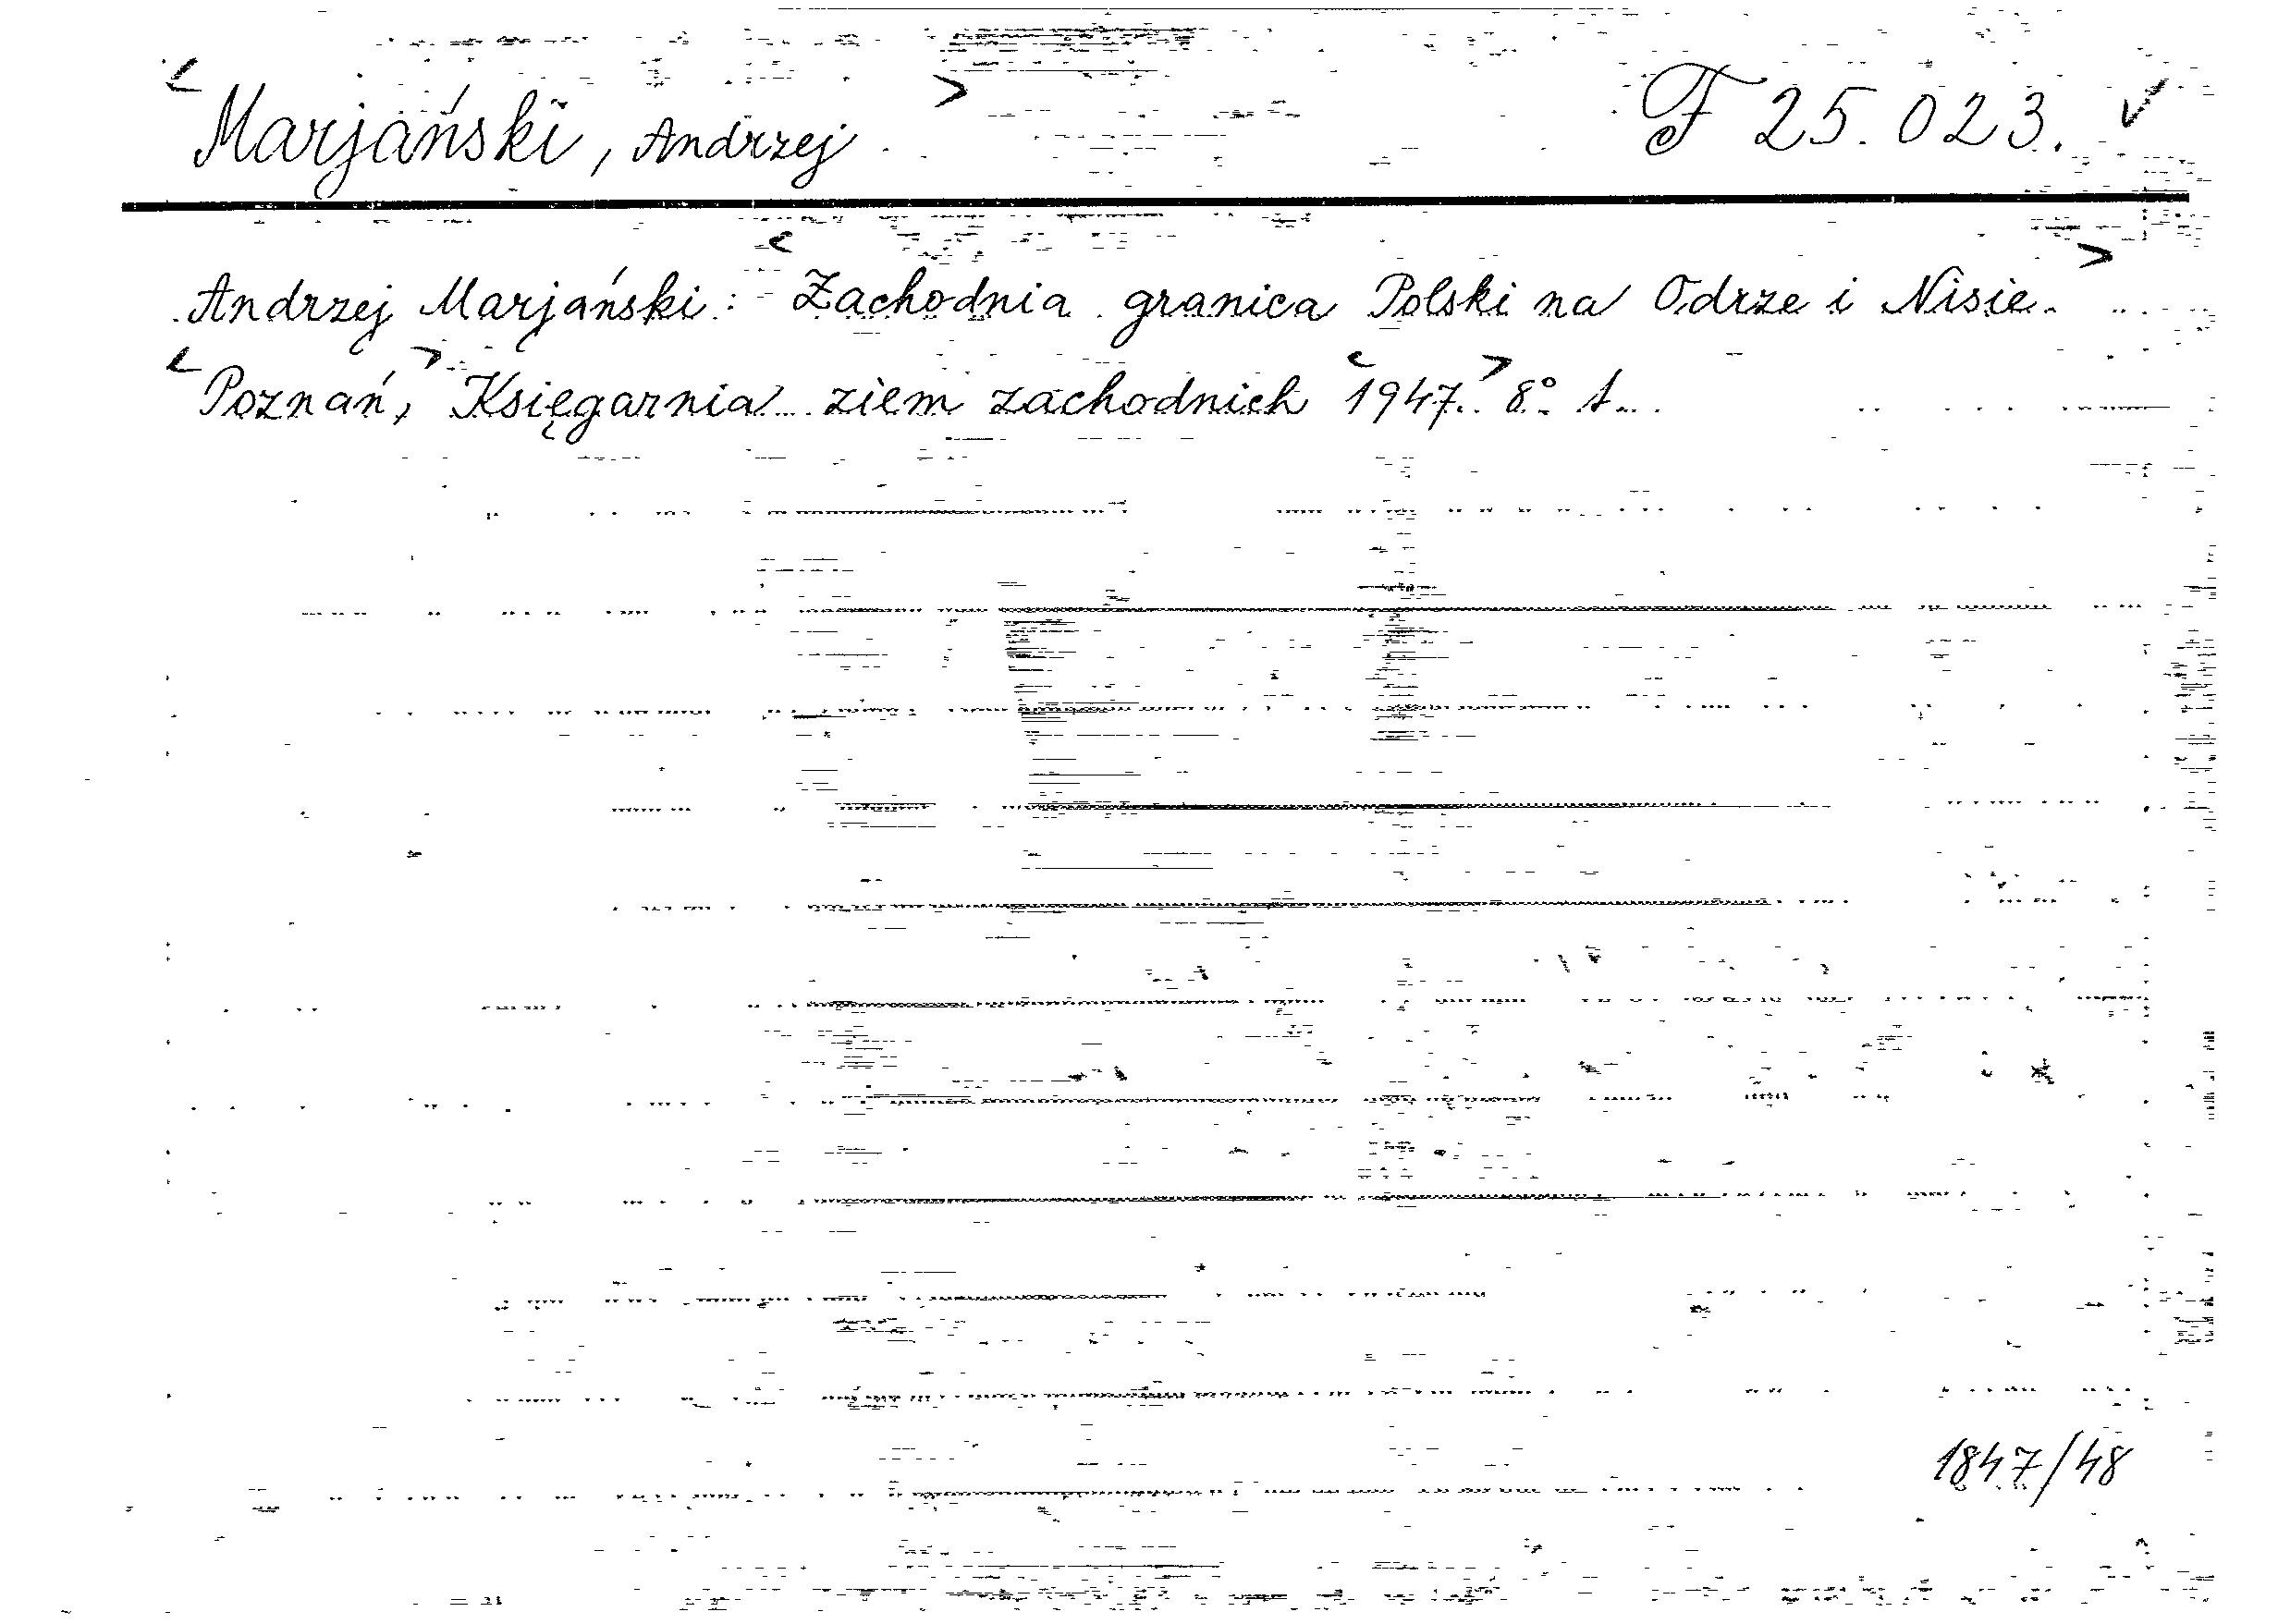 <Marjański, Andrzej> F 25.023. ✓
Andrzej Marjański: <Zachodnia granica Polski na Odrze i Nisie.>
<Poznań,> Księgarnia ziem zachodnich <1947.> 8°
1847/48